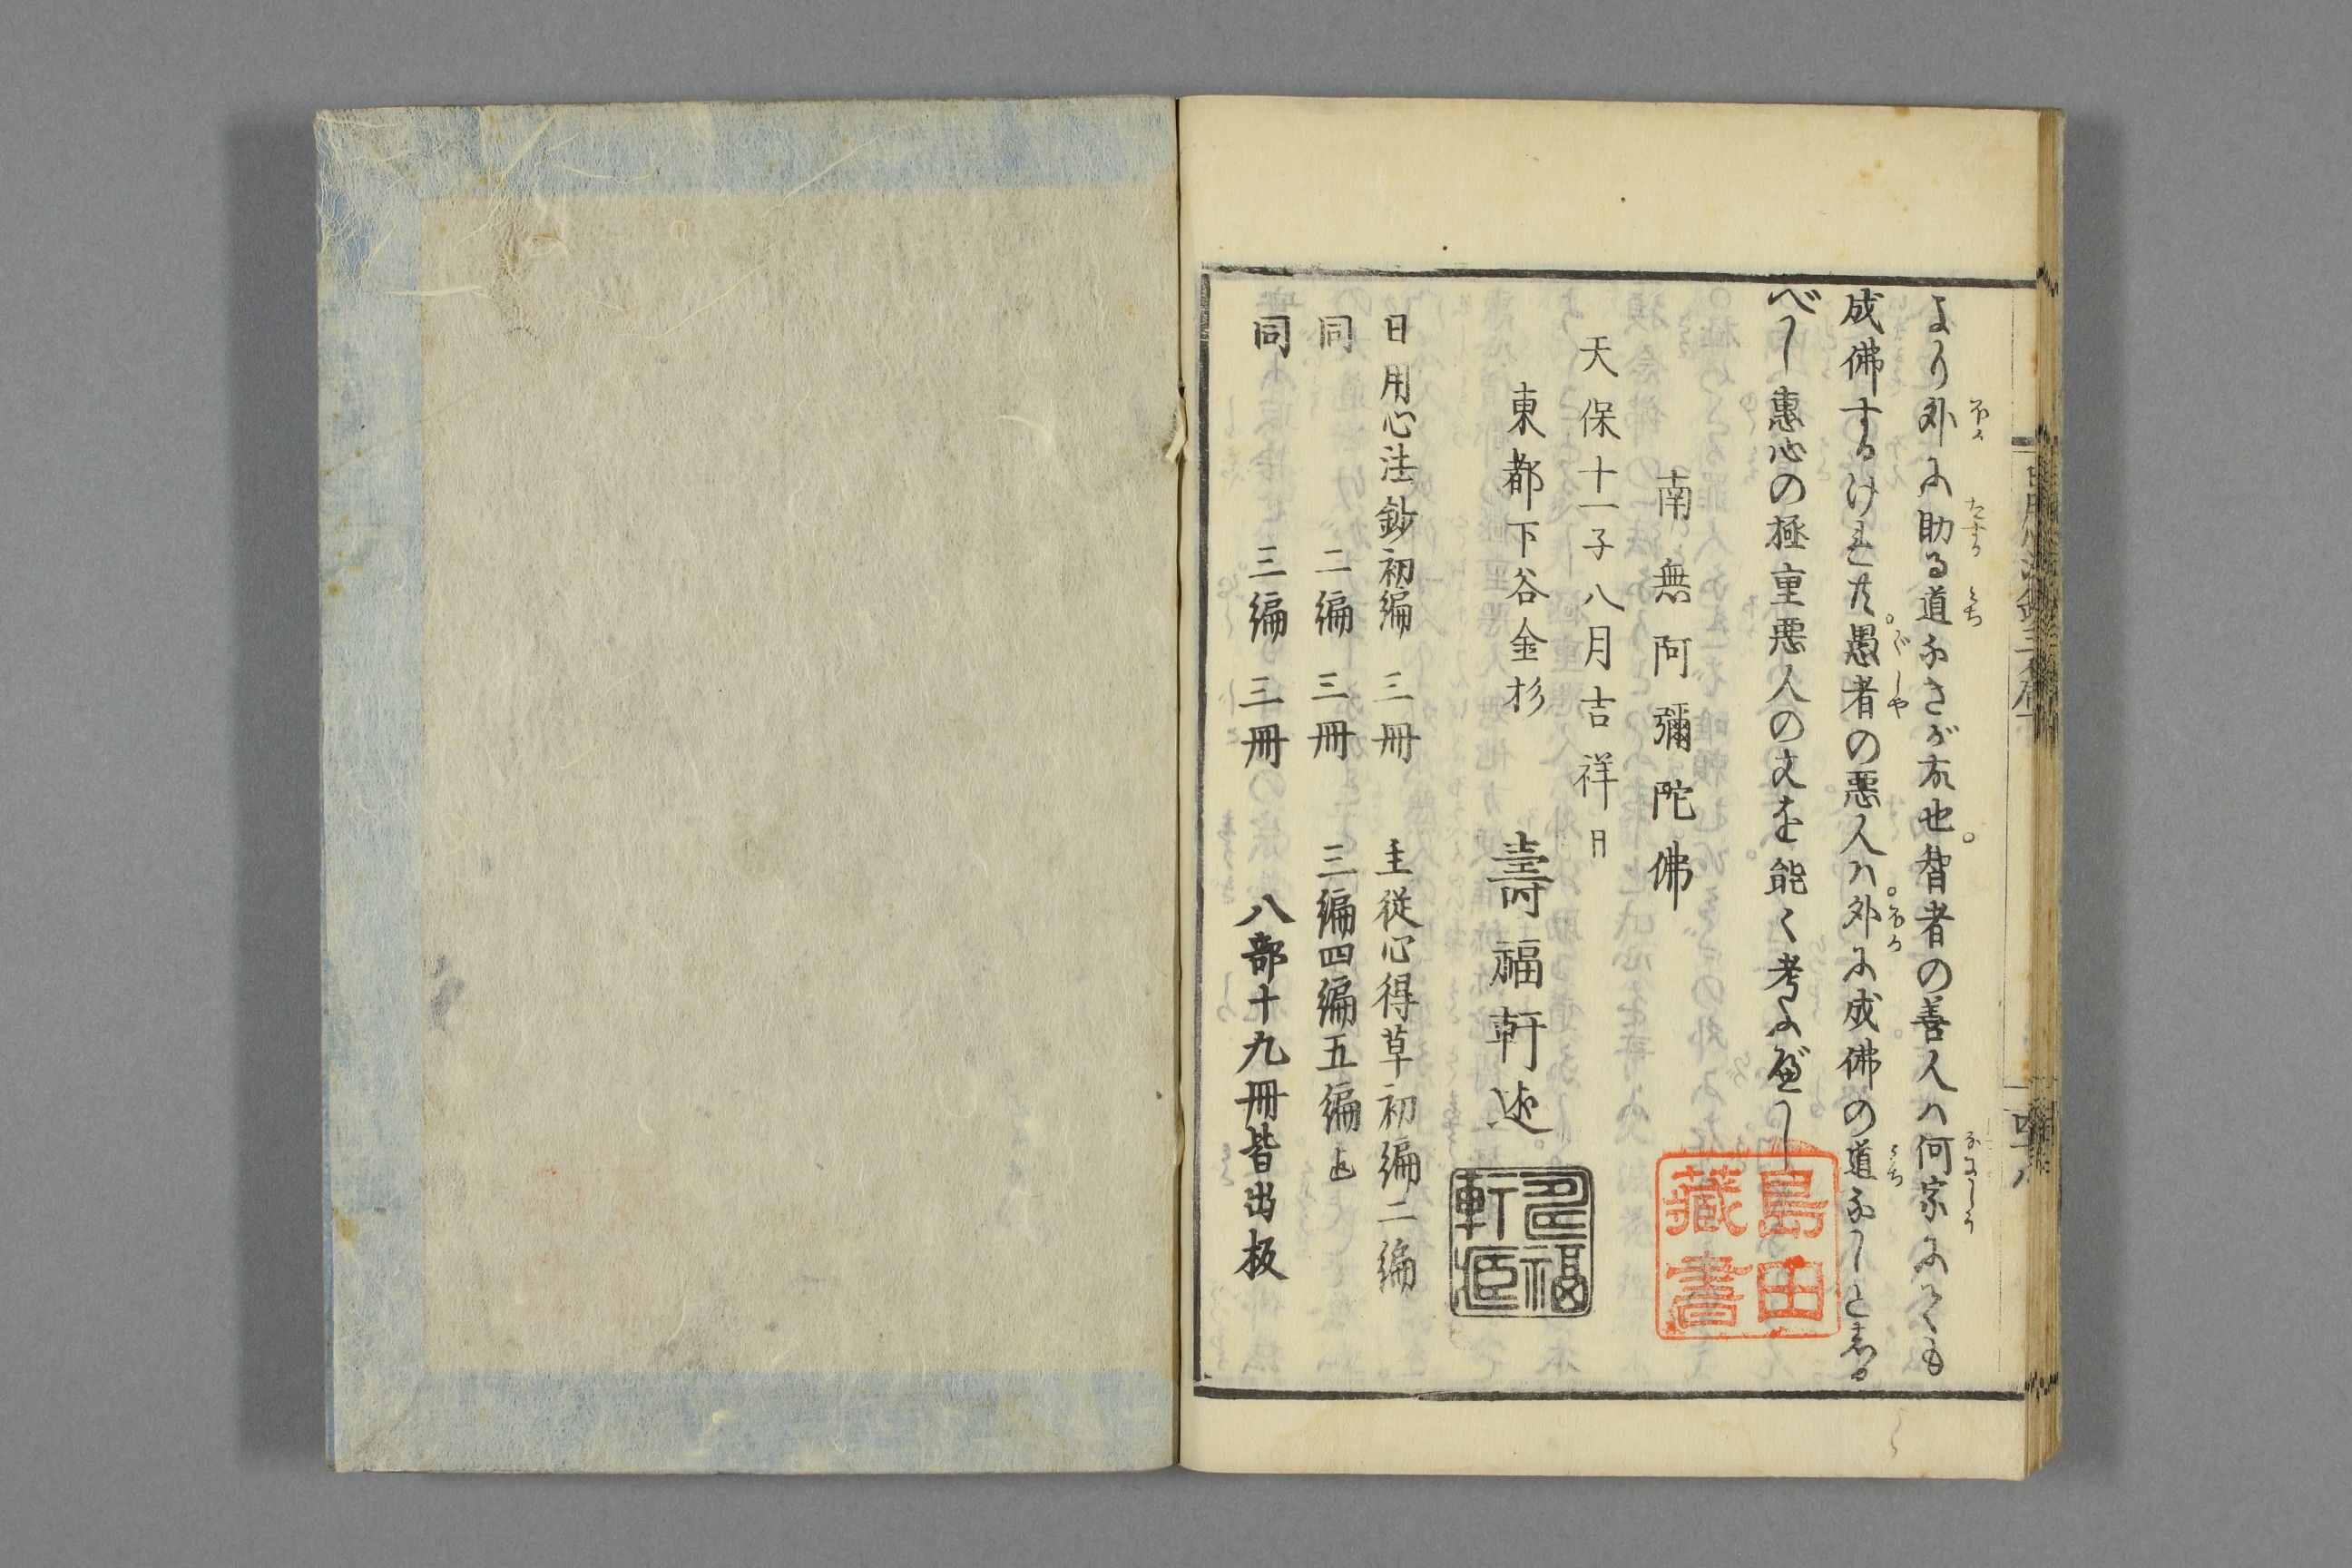 より外に助る道なきが故也。智者の善人ハ何宗にても
成佛するけれ共。愚者の悪人ハ。外に成佛の道なしと志る
べし惠心の極重悪人の文を能く考ふべし
南無阿彌陀佛
天保十一子八月吉祥日
東都下谷金杉 壽福軒述
日用心法鈔初編 三冊 主従心得草初編二編
同 二編 三冊 三編四編五編迄
同 三編 三冊 八部十九冊皆出板
島田
藏書
福
軒